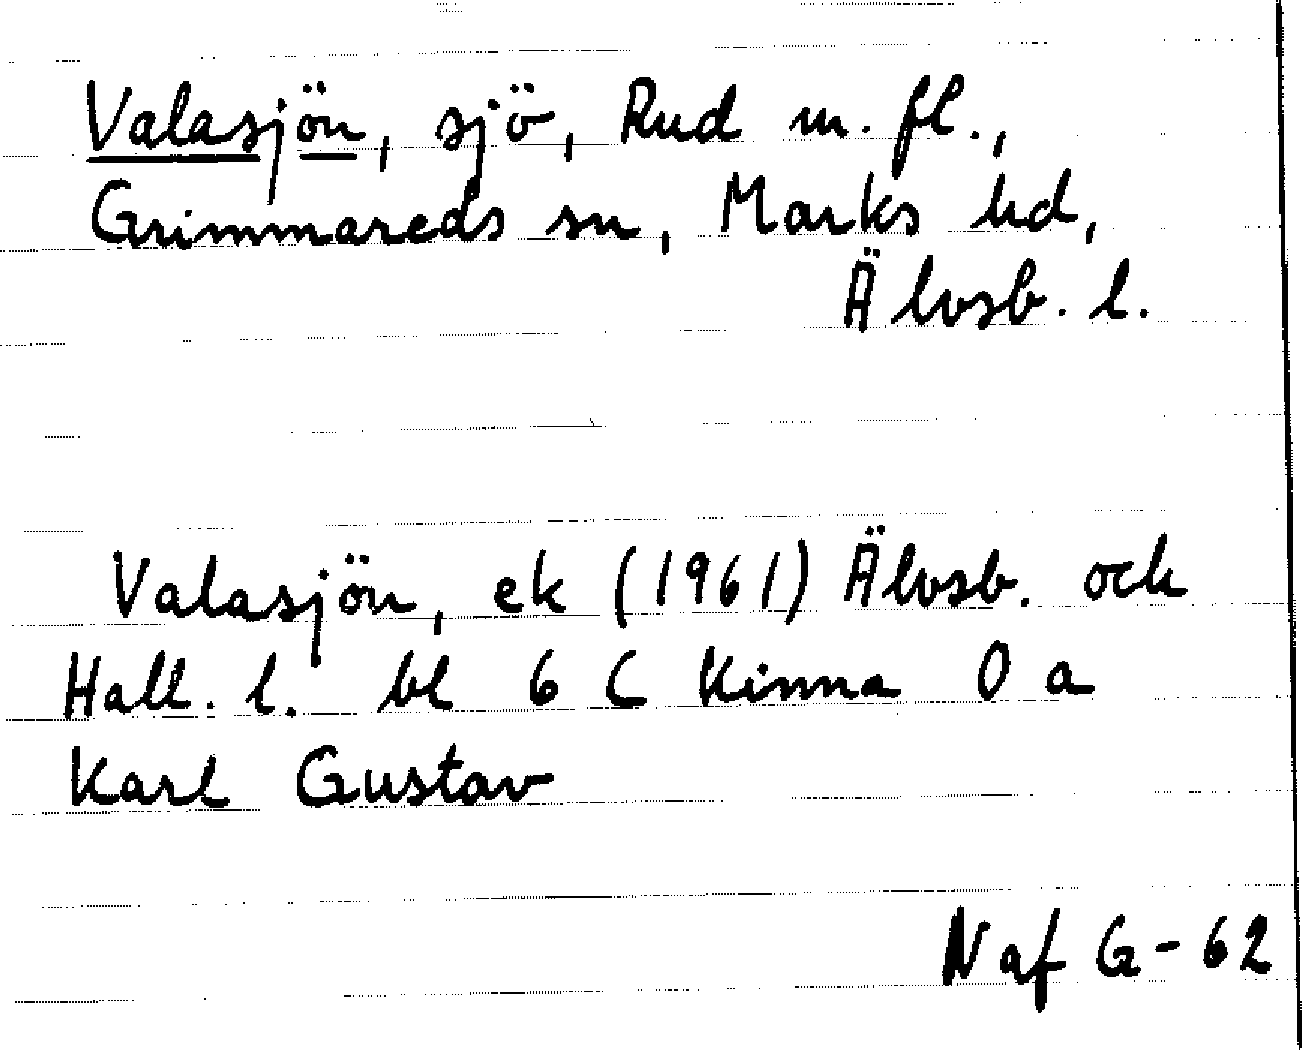 Valasjön, sjö, Rud m. fl.,
Grimmareds sn, Marks hd,
Älvsb. l.
Valasjön, ek (1961) Älvsb. och
Hall. l. bl 6 C Kinna 0 a
Karl Gustav
N af G-62